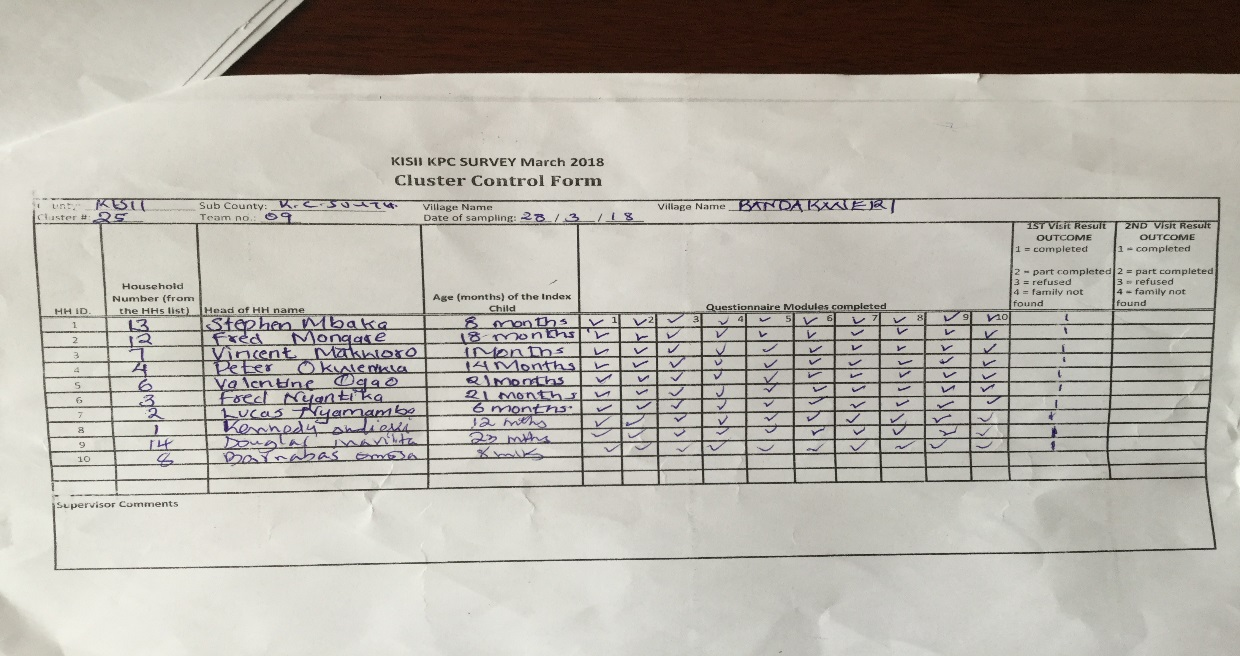 KISII KPC SURVEY March 2018
Cluster Control Form
KISII Sub County: K.C. SOUTH Village Name Village Name BANDAKWERI
Cluster #: 25 Team no.: 09 Date of sampling: 28 / 3 / 18
HH ID. Household Number (from the HHs list) Head of HH name Age (months) of the Index Child Questionnaire Modules completed 1ST Visit Result OUTCOME 1 = completed 2 = part completed 3 = refused 4 = family not found 2ND Visit Result OUTCOME 1 = completed 2 = part completed 3 = refused 4 = family not found
1 13 Stephen Mbaka 8 months ✓ 1 ✓ 2 ✓ 3 ✓ 4 ✓ 5 ✓ 6 ✓ 7 ✓ 8 ✓ 9 ✓ 10 1
2 12 Fred Mongare 18 months ✓ ✓ ✓ ✓ ✓ ✓ ✓ ✓ ✓ ✓ 1
3 7 Vincent Makworo 1 Months ✓ ✓ ✓ ✓ ✓ ✓ ✓ ✓ ✓ ✓ 1
4 4 Peter 14 Months ✓ ✓ ✓ ✓ ✓ ✓ ✓ ✓ ✓ ✓ 1
5 6 Valentine Ogao 21 months ✓ ✓ ✓ ✓ ✓ ✓ ✓ ✓ ✓ ✓ 1
6 3 Fred Nyantika 21 Months ✓ ✓ ✓ ✓ ✓ ✓ ✓ ✓ ✓ ✓ 1
7 2 Lucas Nyamambo 6 months. ✓ ✓ ✓ ✓ ✓ ✓ ✓ ✓ ✓ ✓ 1
8 1 Kennedy 12 mths ✓ ✓ ✓ ✓ ✓ ✓ ✓ ✓ ✓ ✓ 1
9 14 Douglas mths ✓ ✓ ✓ ✓ ✓ ✓ ✓ ✓ ✓ ✓ 1
10 8 Barnabas omosa
Supervisor Comments